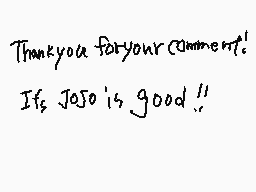 Thankyou foryour comment!
Its JoJo is good!!